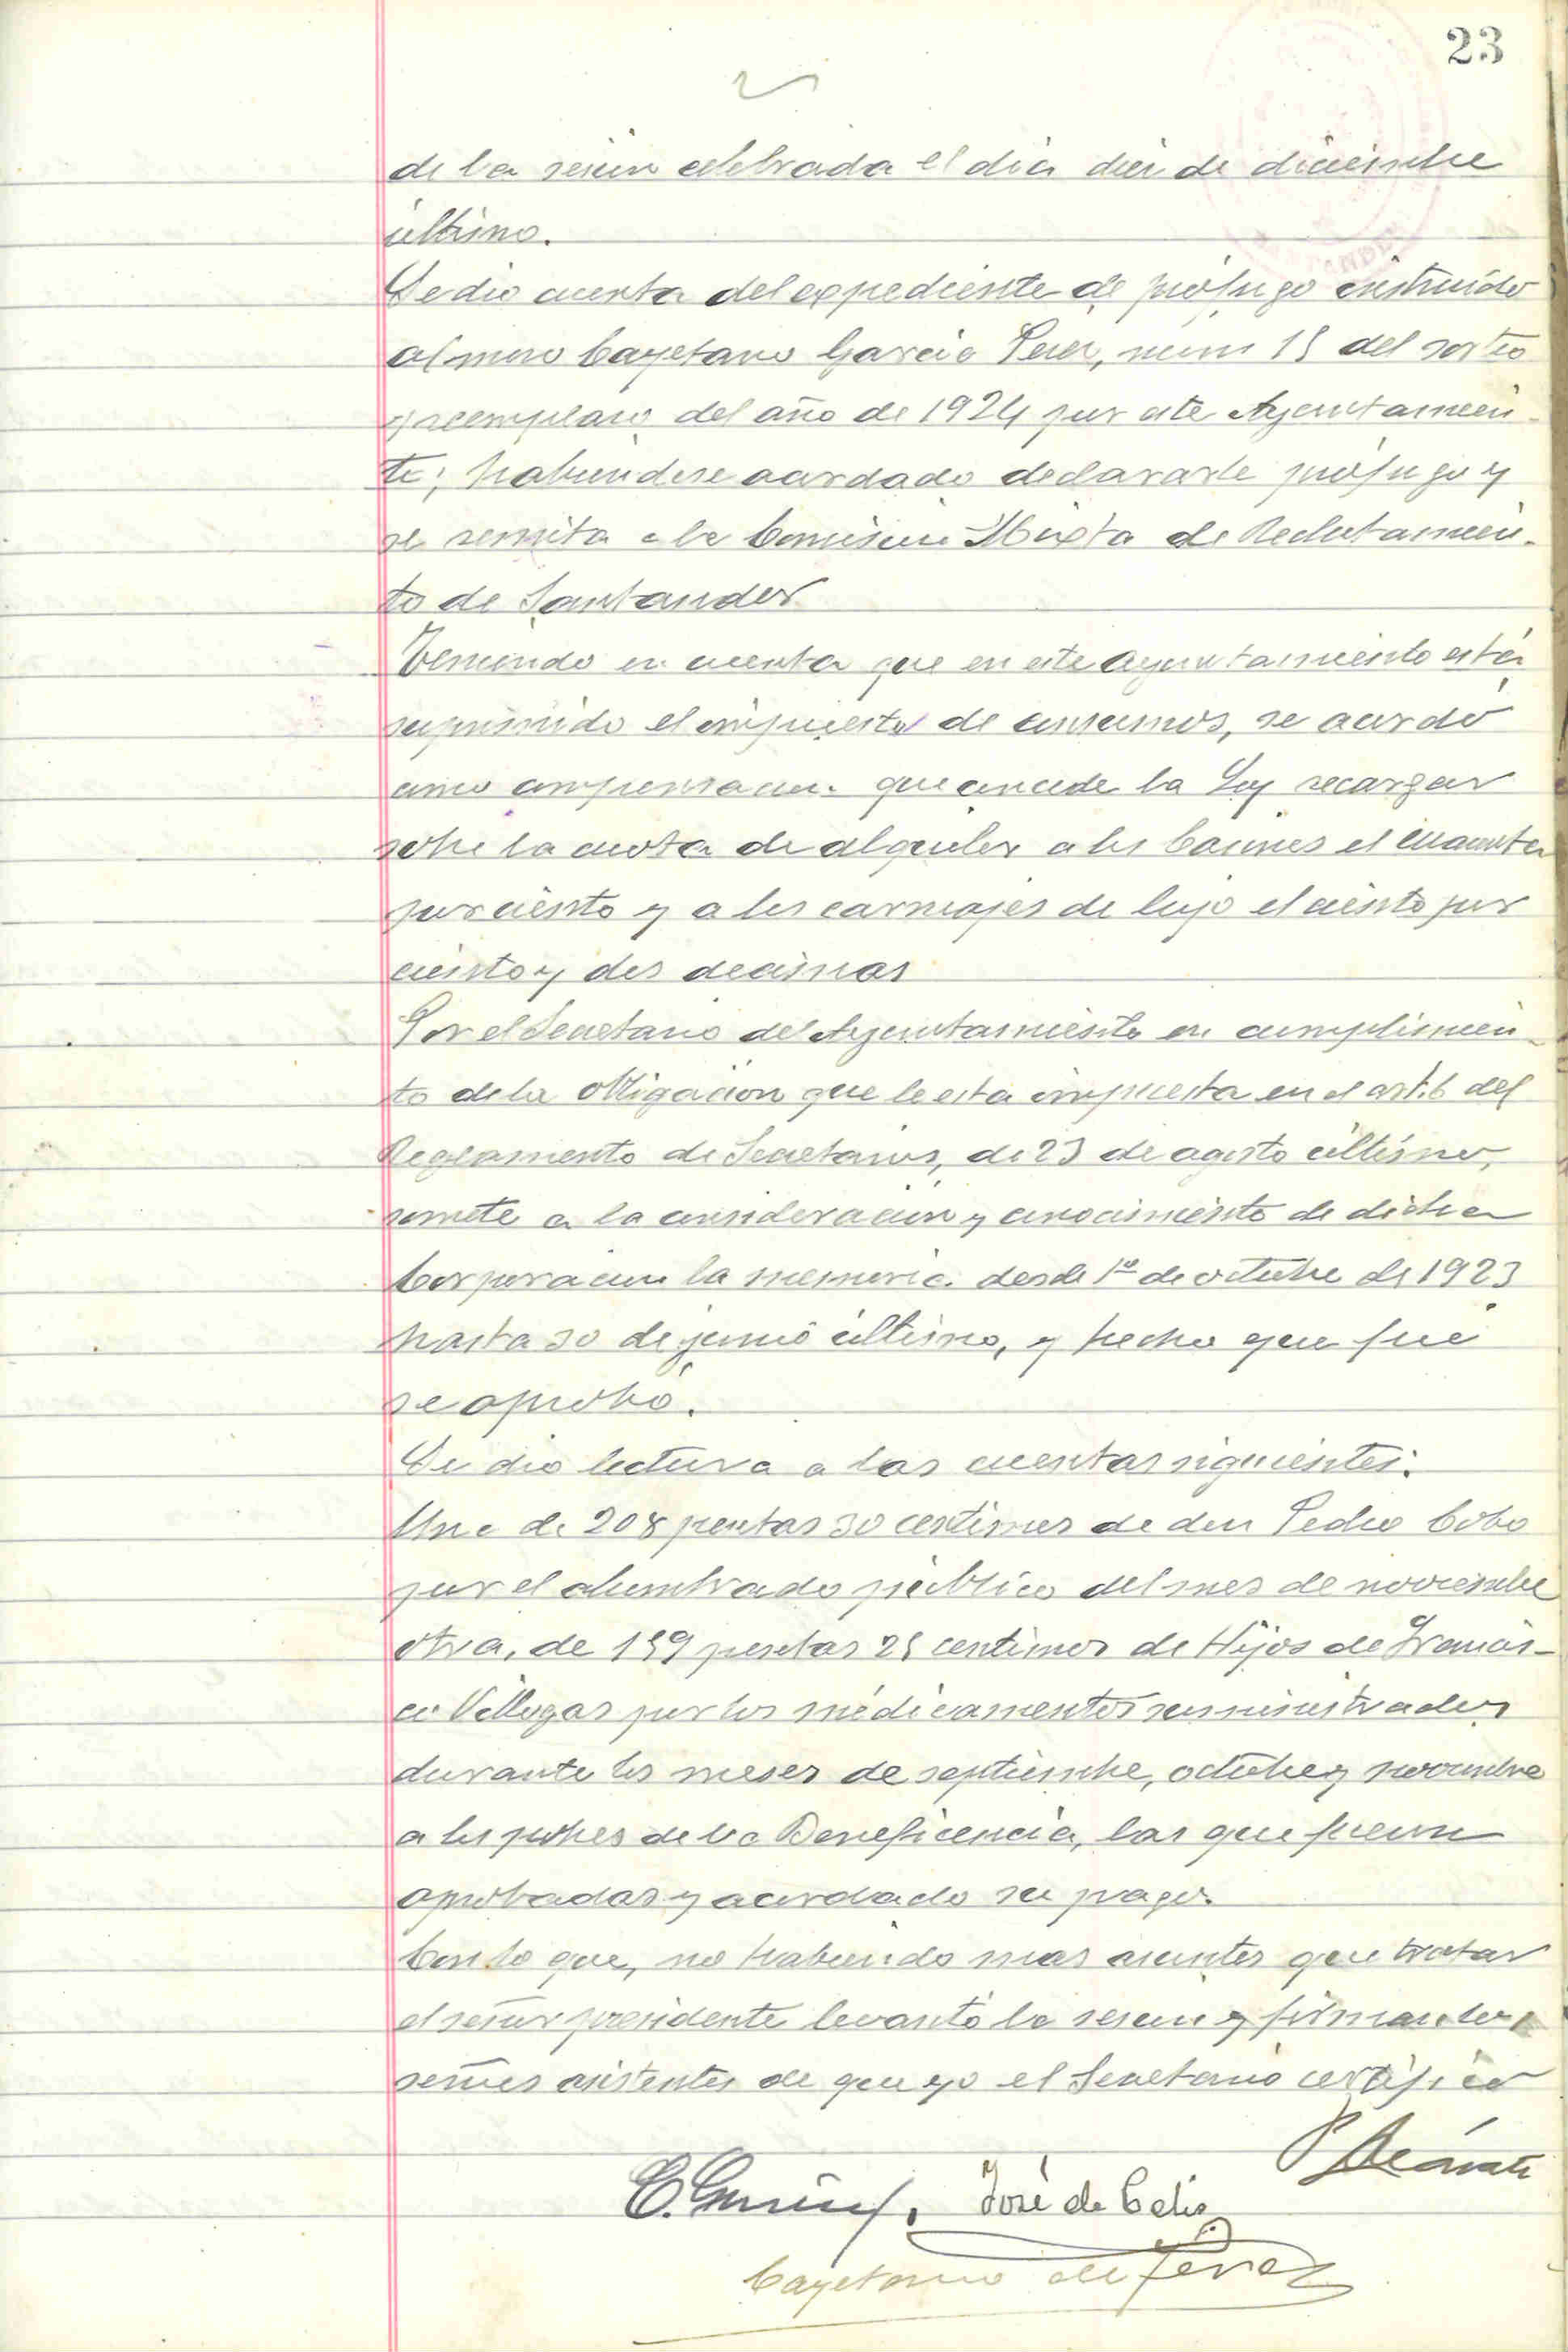 23
de la sesión celebrada el día diez de diciembre
último.
Se dio cuenta del expediente de prófugo instruido
al mozo Cayetano García Perez, núm 15 del sorteo
y reemplazo del año de 1924 por este Ayuntamien-
to; habiendose acordado declararle prófugo y
se remita a la Comisión Mixta de Reclutamien-
to de Santander
Teniendo en cuenta que en este ayuntamiento está
suprimido el impuesto de consumos, se acordó
como compensacion que concede la Ley recargar
sobre la cuota de alquiler a los Casinos el cuarenta
por ciento y a los carruajes de lujo el ciento por
ciento y dos decimas
Por el Secretario del Ayuntamiento en cumplimien-
to de la obligacion que le esta impuesta en el art. 6 del
Reglamento de Secretarios, de 23 de agosto último,
somete a la consideración y conocimiento de dicha
Corporacion la memoria desde 1º de octubre de 1923
hasta 30 de junio último, y hecho que fué
se aprobó.
Se dio lectura a las cuentas siguientes:
Una de 208 pesetas 30 centimos de don Pedro Cobo
por el alumbrado público del mes de noviembre
otra, de 159 pesetas 25 centimos de Hijos de Francis-
co Villegas por los médicamentos suministrados
durante los meses de septiembre, octubre y noviembre
a los pobres de la Beneficencia, las que fueron
aprobadas y acordado su pago.
Con lo que, no habiendo mas asuntos que tratar
el señor presidente levantó la sesion y firman los
señores asistentes de que yo el Secretario certifico
José de Celis
Cayetano de